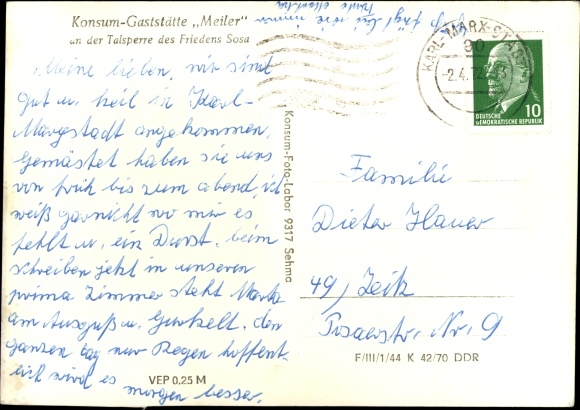 Konsum-Gaststätte „Meiler"
an der Talsperre des Friedens Sosa
Meine lieben, wir sind
gut u. heil in Karl-
Marxstadt angekommen,
Gemästet haben sie uns
von früh bis zum abend, ich
weiß garnicht wo mir es
fehlt u. ein Durst. beim
schreiben jetzt in unseren
prima Zimmer steht
am Ausguß u. Gurkelt. den
ganzen tag nur Regen hoffent-
lich wird es morgen besser.
VEP 0.25 M
Konsum-Foto-Labor 9317 Sehma
KARL-MARX-STADT
90
-2.4.
10
DEUTSCHE
DEMOKRATISCHE REPUBLIK
Familie
Dieter Hauer
49, Zeitz
Nr. 9
F/III/1/44 K 42/70 DDR